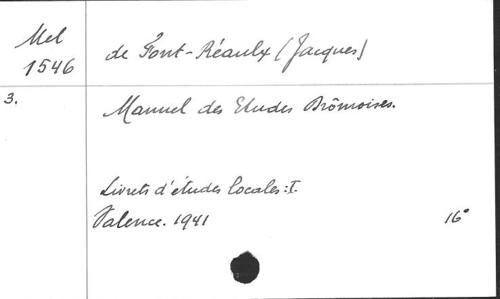 Mel
1546
de Font-Réaulx (Jacques)
3.
Manuel des Etudes Drômoises.
Livrets d'études locales: I.
Valence. 1941
16°